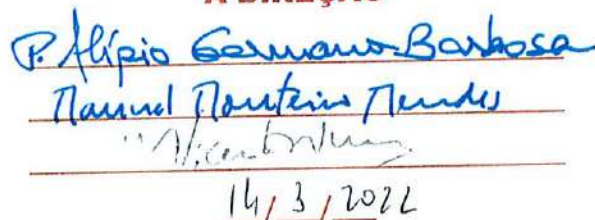 A DIREÇÃO
P. Alípio Germano Barbosa
Manuel Monteiro Mendes
14/3/2022